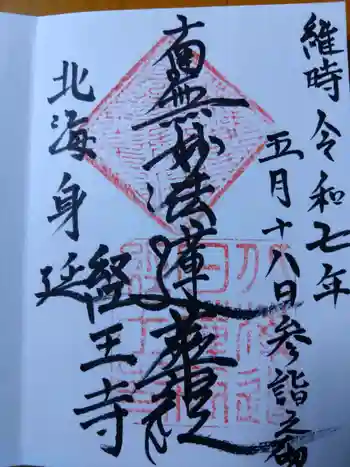 維時 令和七年
五月十八日参詣之砌
南無妙法蓮華経
北海身延
経王寺